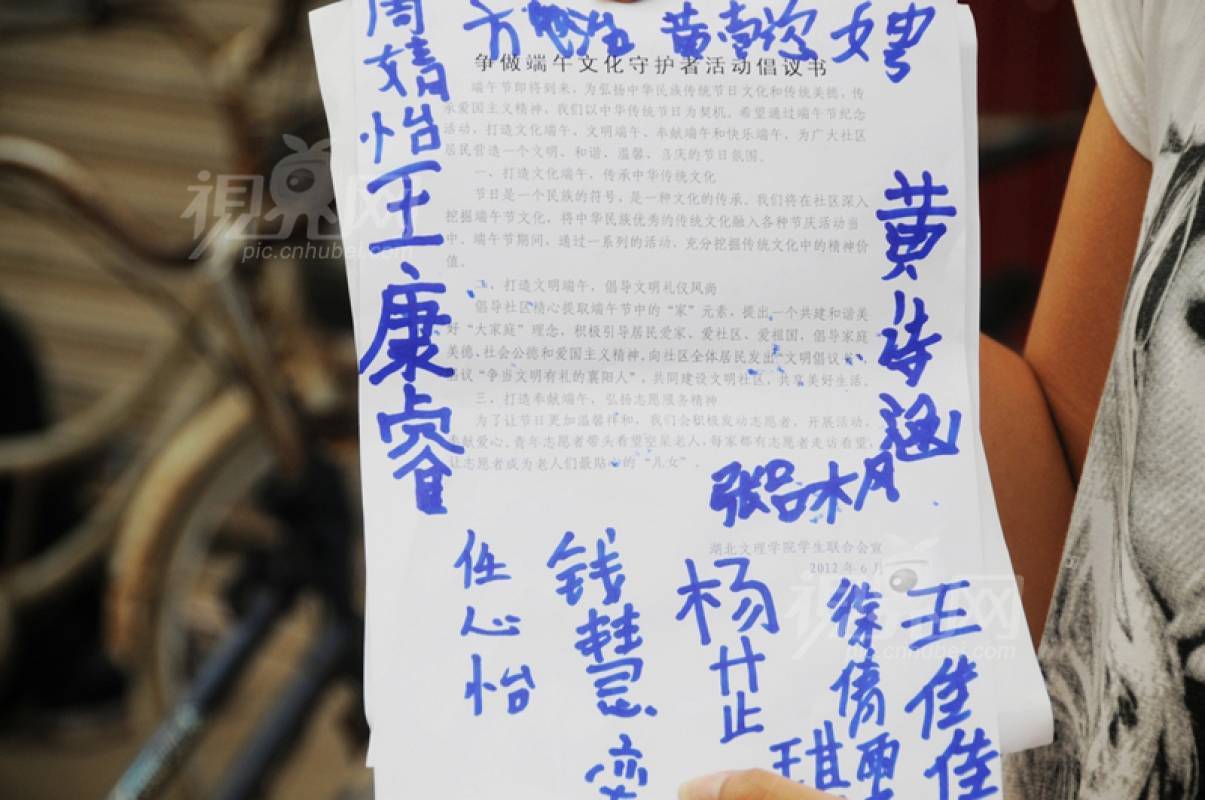 争做端午文化守护者活动倡议书
端午节即将到来，为弘扬中华民族传统节日文化和传统美德，传
承爱国主义精神，我们以中华传统节日为契机，希望通过端午节纪念
活动，打造文化端午、文明端午、奉献端午和快乐端午，为广大社区
居民营造一个文明、和谐、温馨、喜庆的节日氛围。
一、打造文化端午，传承中华传统文化
节日是一个民族的符号，是一种文化的传承。我们将在社区深入
挖掘端午节文化，将中华民族优秀的传统文化融入各种节庆活动当
中。端午节期间，通过一系列的活动，充分挖掘传统文化中的精神价
值。
二、打造文明端午，倡导文明礼仪风尚
倡导社区精心提取端午节中的“家”元素，提出一个共建和谐美
好“大家庭”理念，积极引导居民爱家、爱社区、爱祖国，倡导家庭
美德、社会公德和爱国主义精神。向社区全体居民发出“文明倡议书”，
倡议“争当文明有礼的襄阳人”，共同建设文明社区，共享美好生活。
三、打造奉献端午，弘扬志愿服务精神
为了让节日更加温馨祥和，我们会积极发动志愿者，开展活动，
奉献爱心。青年志愿者带头看望空巢老人，每家都有志愿者走访看望，
让志愿者成为老人们最贴心的“儿女”。
湖北文理学院学生联合会宣
2012年6月
周婧怡
王康睿
黄诗涵
任心怡
钱慧
杨芷
徐倩
王佳佳
視界网
pic.cnhubei.com
視界网
pic.cnhubei.com